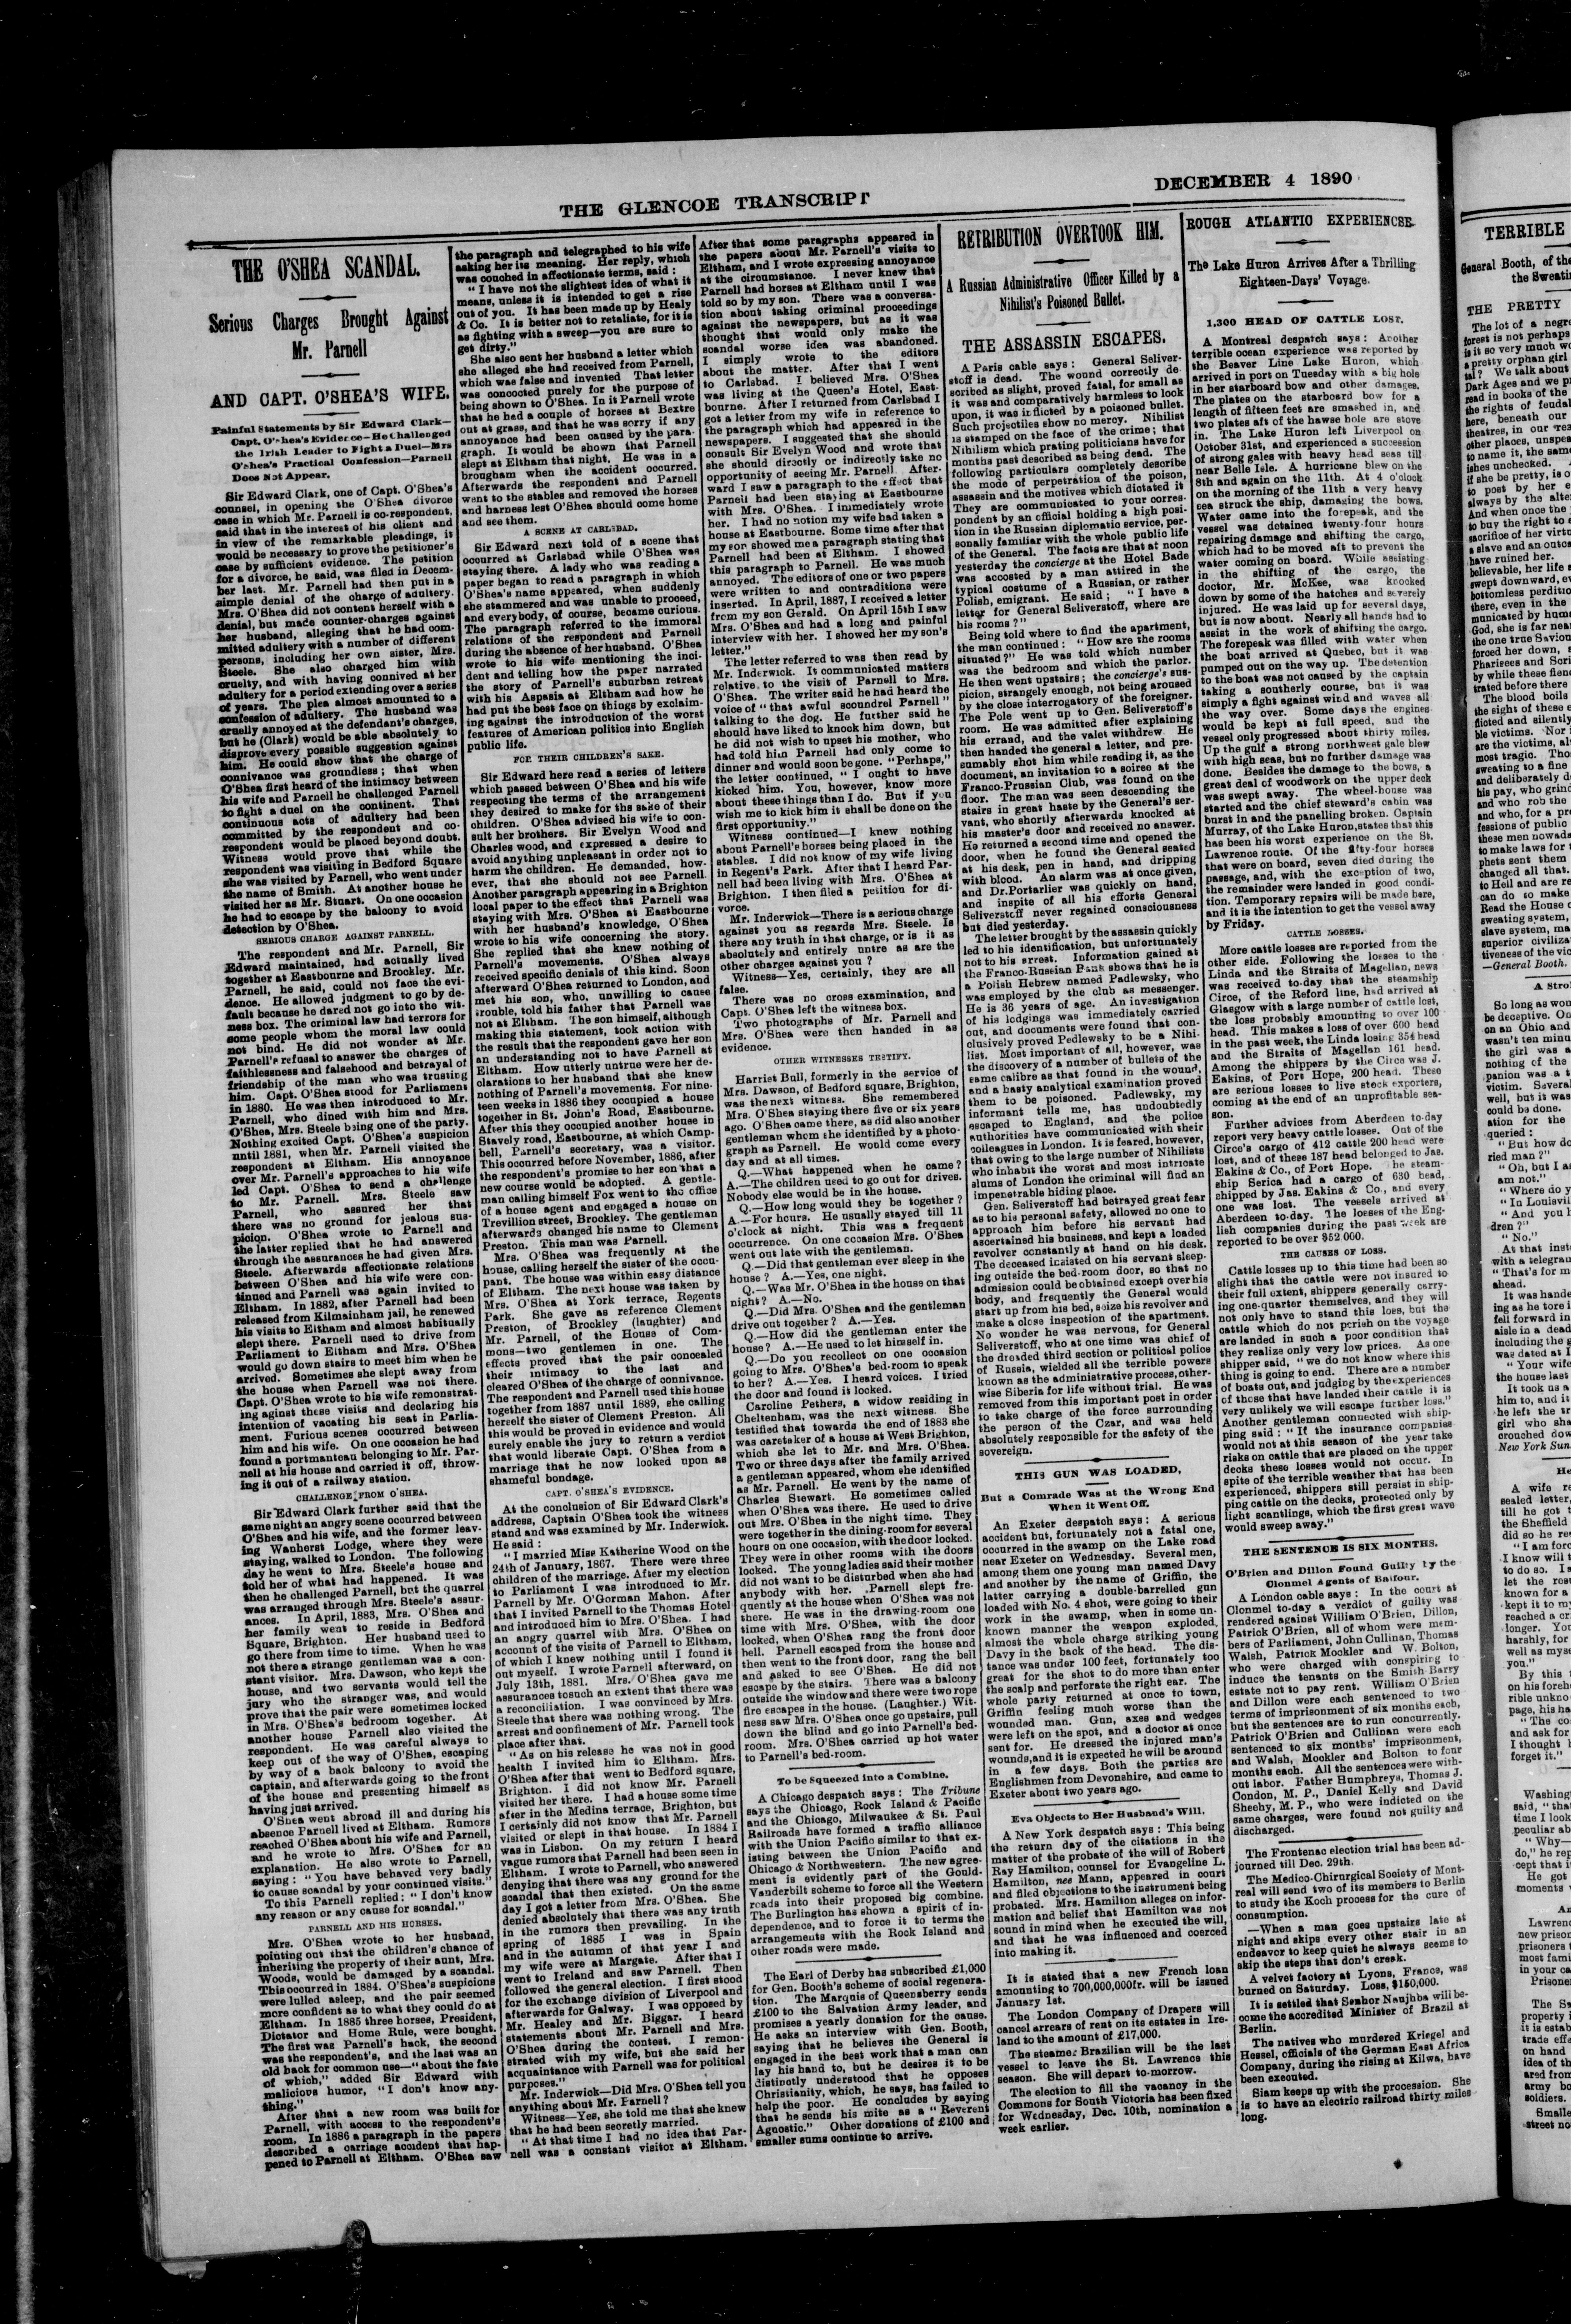 THE GLENCOE TRANSCRIPT
DECEMBER 4 1890
THE O'SHEA SCANDAL.
Serious Charges Brought Against
Mr. Parnell
AND CAPT. O'SHEA'S WIFE.
Painful Statements by Sir Edward Clark—
Capt. O'Shea's Evidence—He Challenged
the Irish Leader to Fight a Duel—Mrs
O'Shea's Practical Confession—Parnell
Does Not Appear.
Sir Edward Clark, one of Capt. O'Shea's
counsel, in opening the O'Shea divorce
case in which Mr. Parnell is co-respondent,
said that in the interest of his client and
in view of the remarkable pleadings, it
would be necessary to prove the petitioner's
case by sufficient evidence. The petition
for a divorce, he said, was filed in Decem-
ber last. Mr. Parnell had then put in a
simple denial of the charge of adultery.
Mrs. O'Shea did not content herself with a
denial, but made counter-charges against
her husband, alleging that he had com-
mitted adultery with a number of different
persons, including her own sister, Mrs.
Steele. She also charged him with
cruelty, and with having connived at her
adultery for a period extending over a series
of years. The plea almost amounted to a
confession of adultery. The husband was
cruelly annoyed at the defendant's charges,
but he (Clark) would be able absolutely to
disprove every possible suggestion against
him. He could show that the charge of
connivance was groundless; that when
O'Shea first heard of the intimacy between
his wife and Parnell he challenged Parnell
to fight a duel on the continent. That
continuous acts of adultery had been
committed by the respondent and co-
respondent would be placed beyond doubt.
Witness would prove that while the
respondent was visiting in Bedford Square
she was visited by Parnell, who went under
the name of Smith. At another house he
visited her as Mr. Stuart. On one occasion
he had to escape by the balcony to avoid
detection by O'Shea.
SERIOUS CHARGE AGAINST PARNELL.
The respondent and Mr. Parnell, Sir
Edward maintained, had actually lived
together at Eastbourne and Brockley. Mr.
Parnell, he said, could not face the evi-
dence. He allowed judgment to go by de-
fault because he dared not go into the wit-
ness box. The criminal law had terrors for
some people whom the moral law could
not bind. He did not wonder at Mr.
Parnell's refusal to answer the charges of
faithlessness and falsehood and betrayal of
friendship of the man who was trusting
him. Capt. O'Shea stood for Parliament
in 1880. He was then introduced to Mr.
Parnell, who dined with him and Mrs.
O'Shea, Mrs. Steele being one of the party.
Nothing excited Capt. O'Shea's suspicion
until 1881, when Mr. Parnell visited the
respondent at Eltham. His annoyance
over Mr. Parnell's approaches to his wife
led Capt. O'Shea to send a challenge
to Mr. Parnell. Mrs. Steele saw
Parnell, who assured her that
there was no ground for jealous sus-
picion. O'Shea wrote to Parnell and
the latter replied that he had answered
through the assurances he had given Mrs.
Steele. Afterwards affectionate relations
between O'Shea and his wife were con-
tinued and Parnell was again invited to
Eltham. In 1882, after Parnell had been
released from Kilmainham jail, he renewed
his visits to Eltham and almost habitually
slept there. Parnell used to drive from
Parliament to Eltham and Mrs. O'Shea
would go down stairs to meet him when he
arrived. Sometimes she slept away from
the house when Parnell was not there.
Capt. O'Shea wrote to his wife remonstrat-
ing against these visits and declaring his
intention of vacating his seat in Parlia-
ment. Furious scenes occurred between
him and his wife. On one occasion he had
found a portmanteau belonging to Mr. Par-
nell at his house and carried it off, throw-
ing it out of a railway station.
CHALLENGE FROM O'SHEA.
Sir Edward Clark further said that the
same night an angry scene occurred between
O'Shea and his wife, and the former leav-
ing Wanherst Lodge, where they were
staying, walked to London. The following
day he went to Mrs. Steele's house and
told her of what had happened. It was
then he challenged Parnell, but the quarrel
was arranged through Mrs. Steele's assur-
ances. In April, 1883, Mrs. O'Shea and
her family went to reside in Bedford
Square, Brighton. Her husband used to
go there from time to time. When he was
not there a strange gentleman was a con-
stant visitor. Mrs. Dawson, who kept the
house, and two servants would tell the
jury who the stranger was, and would
prove that the pair were sometimes locked
in Mrs. O'Shea's bedroom together. At
another house Parnell also visited the
respondent. He was careful always to
keep out of the way of O'Shea, escaping
by way of a back balcony to avoid the
captain, and afterwards going to the front
of the house and presenting himself as
having just arrived.
O'Shea went abroad ill and during his
absence Parnell lived at Eltham. Rumors
reached O'Shea about his wife and Parnell,
and he wrote to Mrs. O'Shea for an
explanation. He also wrote to Parnell,
saying: "You have behaved very badly
to cause scandal by your continued visits."
To this Parnell replied: "I don't know
any reason or any cause for scandal."
PARNELL AND HIS HORSES.
Mrs. O'Shea wrote to her husband,
pointing out that the children's chance of
inheriting the property of their aunt, Mrs.
Woods, would be damaged by a scandal.
This occurred in 1884. O'Shea's suspicions
were lulled asleep, and the pair seemed
more confident as to what they could do at
Eltham. In 1885 three horses, President,
Dictator and Home Rule, were bought.
The first was Parnell's hack, the second
was the respondent's, and the last was an
old back for common use—"about the fate
of which," added Sir Edward with
malicious humor, "I don't know any-
thing."
After that a new room was built for
Parnell, with access to the respondent's
room. In 1886 a paragraph in the papers
described a carriage accident that hap-
pened to Parnell at Eltham. O'Shea saw
the paragraph and telegraphed to his wife
asking her its meaning. Her reply, which
was couched in affectionate terms, said:
"I have not the slightest idea of what it
means, unless it is intended to get a rise
out of you. It has been made up by Healy
& Co. It is better not to retaliate, for it is
as fighting with a sweep—you are sure to
get dirty."
She also sent her husband a letter which
she alleged she had received from Parnell,
which was false and invented That letter
was concocted purely for the purpose of
being shown to O'Shea. In it Parnell wrote
that he had a couple of horses at Bextre
out at grass, and that he was sorry if any
annoyance had been caused by the para-
graph. It would be shown that Parnell
slept at Eltham that night. He was in a
brougham when the accident occurred.
Afterwards the respondent and Parnell
went to the stables and removed the horses
and harness lest O'Shea should come home
and see them.
A SCENE AT CARLSBAD.
Sir Edward next told of a scene that
occurred at Carlsbad while O'Shea was
staying there. A lady who was reading a
paper began to read a paragraph in which
O'Shea's name appeared, when suddenly
she stammered and was unable to proceed,
and everybody, of course, became curious.
The paragraph referred to the immoral
relations of the respondent and Parnell
during the absence of her husband. O'Shea
wrote to his wife mentioning the inci-
dent and telling how the paper narrated
the story of Parnell's suburban retreat
with his Aspasia at Eltham and how he
had put the best face on things by exclaim-
ing against the introduction of the worst
features of American politics into English
public life.
FOR THEIR CHILDREN'S SAKE.
Sir Edward here read a series of letters
which passed between O'Shea and his wife
respecting the terms of the arrangement
they desired to make for the sake of their
children. O'Shea advised his wife to con-
sult her brothers. Sir Evelyn Wood and
Charles wood, and expressed a desire to
avoid anything unpleasant in order not to
harm the children. He demanded, how-
ever, that she should not see Parnell.
Another paragraph appearing in a Brighton
local paper to the effect that Parnell was
staying with Mrs. O'Shea at Eastbourne
with her husband's knowledge, O'Shea
wrote to his wife concerning the story.
She replied that she knew nothing of
Parnell's movements. O'Shea always
received specific denials of this kind. Soon
afterward O'Shea returned to London, and
met his son, who, unwilling to cause
trouble, told his father that Parnell was
not at Eltham. The son himself, although
making this statement, took action with
the result that the respondent gave her son
an understanding not to have Parnell at
Eltham. How utterly untrue were her de-
clarations to her husband that she knew
nothing of Parnell's movements. For nine-
teen weeks in 1886 they occupied a house
together in St. John's Road, Eastbourne.
After this they occupied another house in
Stavely road, Eastbourne, at which Camp-
bell, Parnell's secretary, was a visitor.
This occurred before November, 1886, after
the respondent's promise to her son that a
new course would be adopted. A gentle-
man calling himself Fox went to the office
of a house agent and engaged a house on
Trevillion street, Brockley. The gentleman
afterwards changed his name to Clement
Preston. This man was Parnell.
Mrs. O'Shea was frequently at the
house, calling herself the sister of the occu-
pant. The house was within easy distance
of Eltham. The next house was taken by
Mrs. O'Shea at York terrace, Regents
Park. She gave as reference Clement
Preston, of Brockley (laughter) and
Mr. Parnell, of the House of Com-
mons—two gentlemen in one. The
effects proved that the pair concealed
their intimacy to the last and
cleared O'Shea of the charge of connivance.
The respondent and Parnell used this house
together from 1887 until 1889, she calling
herself the sister of Clement Preston. All
this would be proved in evidence and would
surely enable the jury to return a verdict
that would liberate Capt. O'Shea from a
marriage that he now looked upon as
shameful bondage.
CAPT. O'SHEA'S EVIDENCE.
At the conclusion of Sir Edward Clark's
address, Captain O'Shea took the witness
stand and was examined by Mr. Inderwick.
He said:
"I married Miss Katherine Wood on the
24th of January, 1867. There were three
children of the marriage. After my election
to Parliament I was introduced to Mr.
Parnell by Mr. O'Gorman Mahon. After
that I invited Parnell to the Thomas Hotel
and introduced him to Mrs. O'Shea. I had
an angry quarrel with Mrs. O'Shea on
account of the visits of Parnell to Eltham,
of which I knew nothing until I found it
out myself. I wrote Parnell afterward, on
July 13th, 1881. Mrs. O'Shea gave me
assurances to such an extent that there was
a reconciliation. I was convinced by Mrs.
Steele that there was nothing wrong. The
arrest and confinement of Mr. Parnell took
place after that.
"As on his release he was not in good
health I invited him to Eltham. Mrs.
O'Shea after that went to Bedford square,
Brighton. I did not know Mr. Parnell
visited her there. I had a house some time
after in the Medina terrace, Brighton, but
I certainly did not know that Mr. Parnell
visited or slept in that house. In 1884 I
was in Lisbon. On my return I heard
vague rumors that Parnell had been seen in
Eltham. I wrote to Parnell, who answered
denying that there was any ground for the
scandal that then existed. On the same
day I got a letter from Mrs. O'Shea. She
denied absolutely that there was any truth
in the rumors then prevailing. In the
spring of 1885 I was in Spain
and in the autumn of that year I and
my wife were at Margate. After that I
went to Ireland and saw Parnell. Then
followed the general election. I first stood
for the exchange division of Liverpool and
afterwards for Galway. I was opposed by
Mr. Healey and Mr. Biggar. I heard
statements about Mr. Parnell and Mrs.
O'Shea during the contest. I remon-
strated with my wife, but she said her
acquaintance with Parnell was for political
purposes."
Mr. Inderwick—Did Mrs. O'Shea tell you
anything about Mr. Parnell?
Witness—Yes, she told me that she knew
that he had been secretly married.
"At that time I had no idea that Par-
nell was a constant visitor at Eltham.
After that some paragraphs appeared in
the papers about Mr. Parnell's visits to
Eltham, and I wrote expressing annoyance
at the circumstance. I never knew that
Parnell had horses at Eltham until I was
told so by my son. There was a conversa-
tion about taking criminal proceedings
against the newspapers, but as it was
thought that would only make the
scandal worse idea was abandoned.
I simply wrote to the editors
about the matter. After that I went
to Carlsbad. I believed Mrs. O'Shea
was living at the Queen's Hotel, East-
bourne. After I returned from Carlsbad I
got a letter from my wife in reference to
the paragraph which had appeared in the
newspapers. I suggested that she should
consult Sir Evelyn Wood and wrote that
she should directly or indirectly take no
opportunity of seeing Mr. Parnell. After-
ward I saw a paragraph to the effect that
Parnell had been staying at Eastbourne
with Mrs. O'Shea. I immediately wrote
her. I had no notion my wife had taken a
house at Eastbourne. Some time after that
my son showed me a paragraph stating that
Parnell had been at Eltham. I showed
this paragraph to Parnell. He was much
annoyed. The editors of one or two papers
were written to and contraditions were
inserted. In April, 1887, I received a letter
from my son Gerald. On April 15th I saw
Mrs. O'Shea and had a long and painful
interview with her. I showed her my son's
letter."
The letter referred to was then read by
Mr. Inderwick. It communicated matters
relative to the visit of Parnell to Mrs.
O'Shea. The writer said he had heard the
voice of "that awful scoundrel Parnell"
talking to the dog. He further said he
should have liked to knock him down, but
he did not wish to upset his mother, who
had told him Parnell had only come to
dinner and would soon be gone. "Perhaps,"
the letter continued, "I ought to have
kicked him. You, however, know more
about these things than I do. But if you
wish me to kick him it shall be done on the
first opportunity."
Witness continued—I knew nothing
about Parnell's horses being placed in the
stables. I did not know of my wife living
in Regent's Park. After that I heard Par-
nell had been living with Mrs. O'Shea at
Brighton. I then filed a petition for di-
vorce.
Mr. Inderwick—There is a serious charge
against you as regards Mrs. Steele. Is
there any truth in that charge, or is it as
absolutely and entirely untre as are the
other charges against you?
Witness—Yes, certainly, they are all
false.
There was no cross examination, and
Capt. O'Shea left the witness box.
Two photographs of Mr. Parnell and
Mrs. O'Shea were then handed in as
evidence.
OTHER WITNESSES TESTIFY.
Harriet Bull, formerly in the service of
Mrs. Dawson, of Bedford square, Brighton,
was the next witness. She remembered
Mrs. O'Shea staying there five or six years
ago. O'Shea came there, as did also another
gentleman whom she identified by a photo-
graph as Parnell. He would come every
day and at all times.
Q.—What happened when he came?
A.—The children used to go out for drives.
Nobody else would be in the house.
Q.—How long would they be together?
A.—For hours. He usually stayed till 11
o'clock at night. This was a frequent
occurrence. On one occasion Mrs. O'Shea
went out late with the gentleman.
Q.—Did that gentleman ever sleep in the
house? A.—Yes, one night.
Q.—Was Mr. O'Shea in the house on that
night? A.—No.
Q.—Did Mrs. O'Shea and the gentleman
drive out together? A.—Yes.
Q.—How did the gentleman enter the
house? A.—He used to let himself in.
Q.—Do you recollect on one occasion
going to Mrs. O'Shea's bed-room to speak
to her? A.—Yes. I heard voices. I tried
the door and found it locked.
Caroline Pethers, a widow residing in
Cheltenham, was the next witness. She
testified that towards the end of 1883 she
was caretaker of a house at West Brighton,
which she let to Mr. and Mrs. O'Shea.
Two or three days after the family arrived
a gentleman appeared, whom she identified
as Mr. Parnell. He went by the name of
Charles Stewart. He sometimes called
when O'Shea was there. He used to drive
out Mrs. O'Shea in the night time. They
were together in the dining-room for several
hours on one occasion, with the door locked.
They were in other rooms with the doors
locked. The young ladies said their mother
did not want to be disturbed when she had
anybody with her. Parnell slept fre-
quently at the house when O'Shea was not
there. He was in the drawing-room one
time with Mrs. O'Shea, with the door
locked, when O'Shea rang the front door
bell. Parnell escaped from the house and
then went to the front door, rang the bell
and asked to see O'Shea. He did not
escape by the stairs. There was a balcony
outside the window and there were two rope
fire escapes in the house. (Laughter.) Wit-
ness saw Mrs. O'Shea once go upstairs, pull
down the blind and go into Parnell's bed-
room. Mrs. O'Shea carried up hot water
to Parnell's bed-room.
To be Squeezed into a Combine.
A Chicago despatch says: The Tribune
says the Chicago, Rock Island & Pacific
and the Chicago, Milwaukee & St. Paul
Railroads have formed a traffic alliance
with the Union Pacific similar to that ex-
isting between the Union Pacific and
Chicago & Northwestern. The new agree-
ment is evidently part of the Gould-
Vanderbilt scheme to force all the Western
roads into their proposed big combine.
The Burlington has shown a spirit of in-
dependence, and to force it to terms the
arrangements with the Rock Island and
other roads were made.
The Earl of Derby has subscribed £1,000
for Gen. Booth's scheme of social regenera-
tion. The Marquis of Queensberry sends
£100 to the Salvation Army leader, and
promises a yearly donation for the cause.
He asks an interview with Gen. Booth,
saying that he believes the General is
engaged in the best work that a man can
lay his hand to, but he desires it to be
distinctly understood that he opposes
Christianity, which, he says, has failed to
help the poor. He concludes by saying
that he sends his mite as a "Reverent
Agnostic." Other donations of £100 and
smaller sums continue to arrive.
RETRIBUTION OVERTOOK HIM.
A Russian Administrative Officer Killed by a
Nihilist's Poisoned Bullet.
THE ASSASSIN ESCAPES.
A Paris cable says: General Seliver-
stoff is dead. The wound correctly de-
scribed as slight, proved fatal, for small as
it was and comparatively harmless to look
upon, it was inflicted by a poisoned bullet.
Such projectiles show no mercy. Nihilist
is stamped on the face of the crime; that
Nihilism which prating politicians have for
months past described as being dead. The
following particulars completely describe
the mode of perpetration of the poison,
assassin and the motives which dictated it
They are communicated to your corres-
pondent by an official holding a high posi-
tion in the Russian diplomatic service, per-
sonally familiar with the whole public life
of the General. The facts are that at noon
yesterday the concierge at the Hotel Bade
was accosted by a man attired in the
typical costume of a Russian, or rather
Polish, emigrant. He said; "I have a
letter for General Seliverstoff, where are
his rooms?"
Being told where to find the apartment,
the man continued: "How are the rooms
situated?" He was told which number
was the bedroom and which the parlor.
He then went upstairs; the concierge's sus-
picion, strangely enough, not being aroused
by the close interrogatory of the foreigner.
The Pole went up to Gen. Seliverstoff's
room. He was admitted after explaining
his errand, and the valet withdrew. He
then handed the general a letter, and pre-
sumably shot him while reading it, as the
document, an invitation to a soiree at the
Franco-Prussian Club, was found on the
floor. The man was seen descending the
stairs in great haste by the General's ser-
vant, who shortly afterwards knocked at
his master's door and received no answer.
He returned a second time and opened the
door, when he found the General seated
at his desk, pen in hand, and dripping
with blood. An alarm was at once given,
and Dr. Portarlier was quickly on hand,
and inspite of all his efforts General
Seliverstoff never regained consciousness
but died yesterday.
The letter brought by the assassin quickly
led to his identification, but unfortunately
not to his arrest. Information gained at
the Franco-Russian Bank shows that he is
a Polish Hebrew named Padlewsky, who
was employed by the club as messenger.
He is 36 years of age. An investigation
of his lodgings was immediately carried
out, and documents were found that con-
clusively proved Pedlewsky to be a Nihi-
list. Most important of all, however, was
the discovery of a number of bullets of the
same calibre as that found in the wound,
and a hasty analytical examination proved
them to be poisoned. Padlewsky, my
informant tells me, has undoubtedly
escaped to England, and the police
authorities have communicated with their
colleagues in London. It is feared, however,
that owing to the large number of Nihilists
who inhabit the worst and most intricate
slums of London the criminal will find an
impenetrable hiding place.
Gen. Seliverstoff had betrayed great fear
as to his personal safety, allowed no one to
approach him before his servant had
ascertained his business, and kept a loaded
revolver constantly at hand on his desk.
The deceased insisted on his servant sleep-
ing outside the bed-room door, so that no
admission could be obtained except over his
body, and frequently the General would
start up from his bed, seize his revolver and
make a close inspection of the apartment.
No wonder he was nervous, for General
Seliverstoff, who at one time was chief of
the dreaded third section or political police
of Russia, wielded all the terrible powers
known as the administrative process, other-
wise Siberia for life without trial. He was
removed from this important post in order
to take charge of the force surrounding
the person of the Czar, and was held
absolutely responsible for the safety of the
sovereign.
THIS GUN WAS LOADED,
But a Comrade Was at the Wrong End
When it Went Off.
An Exeter despatch says: A serious
accident but, fortunately not a fatal one,
occurred in the swamp on the Lake road
near Exeter on Wednesday. Several men,
among them one young man named Davy
and another by the name of Griffin, the
latter carrying a double-barrelled gun
loaded with No. 4 shot, were going to their
work in the swamp, when in some un-
known manner the weapon exploded,
almost the whole charge striking young
Davy in the back of the head. The dis-
tance was under 100 feet, fortunately too
great for the shot to do more than enter
the scalp and perforate the right ear. The
whole party returned at once to town,
Griffin feeling much worse than the
wounded man. Gun, axes and wedges
were left on the spot, and a doctor at once
sent for. He dressed the injured man's
wounds, and it is expected he will be around
in a few days. Both the parties are
Englishmen from Devonshire, and came to
Exeter about two years ago.
Eva Objects to Her Husband's Will.
A New York despatch says: This being
the return day of the citations in the
matter of the probate of the will of Robert
Ray Hamilton, counsel for Evangeline L.
Hamilton, nee Mann, appeared in court
and filed objections to the instrument being
probated. Mrs. Hamilton alleges on infor-
mation and belief that Hamilton was not
sound in mind when he executed the will,
and that he was influenced and coerced
into making it.
It is stated that a new French loan
amounting to 700,000,000fr. will be issued
January 1st.
The London Company of Drapers will
cancel arrears of rent on its estates in Ire-
land to the amount of £17,000.
The steamer Brazilian will be the last
vessel to leave the St. Lawrence this
season. She will depart to-morrow.
The election to fill the vacancy in the
Commons for South Victoria has been fixed
for Wednesday, Dec. 10th, nomination a
week earlier.
ROUGH ATLANTIC EXPERIENCSE.
The Lake Huron Arrives After a Thrilling
Eighteen-Days' Voyage.
1,300 HEAD OF CATTLE LOST.
A Montreal despatch says: Another
terrible ocean experience was reported by
the Beaver Line Lake Huron, which
arrived in port on Tuesday with a big hole
in her starboard bow and other damages.
The plates on the starboard bow for a
length of fifteen feet are smashed in, and
two plates aft of the hawse hole are stove
in. The Lake Huron left Liverpool on
October 31st, and experienced a succession
of strong gales with heavy head seas till
near Belle Isle. A hurricane blew on the
8th and again on the 11th. At 4 o'clock
on the morning of the 11th a very heavy
sea struck the ship, damaging the bows.
Water came into the forepeak, and the
vessel was detained twenty-four hours
repairing damage and shifting the cargo,
which had to be moved aft to prevent the
water coming on board. While assisting
in the shifting of the cargo, the
doctor, Mr. McKee, was knocked
down by some of the hatches and severely
injured. He was laid up for several days,
but is now about. Nearly all hands had to
assist in the work of shifting the cargo.
The forepeak was filled with water when
the boat arrived at Quebec, but it was
pumped out on the way up. The detention
to the boat was not caused by the captain
taking a southerly course, but it was
simply a fight against wind and waves all
the way over. Some days the engines
would be kept at full speed, and the
vessel only progressed about thirty miles.
Up the gulf a strong northwest gale blew
with high seas, but no further damage was
done. Besides the damage to the bows, a
great deal of woodwork on the upper deck
was swept away. The wheel-house was
started and the chief steward's cabin was
burst in and the panelling broken. Captain
Murray, of the Lake Huron, states that this
has been his worst experience on the St.
Lawrence route. Of the fifty-four horses
that were on board, seven died during the
passage, and, with the exception of two,
the remainder were landed in good condi-
tion. Temporary repairs will be made here,
and it is the intention to get the vessel away
by Friday.
CATTLE LOSSES.
More cattle losses are reported from the
other side. Following the losses to the
Linda and the Straits of Magellan, news
was received to-day that the steamship
Circe, of the Reford line, had arrived at
Glasgow with a large number of cattle lost,
the loss probably amounting to over 100
head. This makes a loss of over 600 head
in the past week, the Linda losing 354 head
and the Straits of Magellan 161 head.
Among the shippers by the Circe was J.
Eakins, of Port Hope, 200 head. These
are serious losses to live stock exporters,
coming at the end of an unprofitable sea-
son.
Further advices from Aberdeen to-day
report very heavy cattle losses. Out of the
Circe's cargo of 412 cattle 200 head were
lost, and of these 187 head belonged to Jas.
Eakins & Co., of Port Hope. The steam-
ship Serica had a cargo of 630 head,
shipped by Jas. Eakins & Co., and every
one was lost. The vessels arrived at
Aberdeen to-day. The losses of the Eng-
lish companies during the past week are
reported to be over $52 000.
THE CAUSES OF LOSS.
Cattle losses up to this time had been so
slight that the cattle were not insured to
their full extent, shippers generally carry-
ing one-quarter themselves, and they will
not only have to stand this loss, but the
cattle which do not perish on the voyage
are landed in such a poor condition that
they realize only very low prices. As one
shipper said, "we do not know where this
thing is going to end. There are a number
of boats out, and judging by the experiences
of these that have landed their cattle it is
very unlikely we will escape further loss."
Another gentleman connected with ship-
ping said: "If the insurance companies
would not at this season of the year take
risks on cattle that are placed on the upper
decks these losses would not occur. In
spite of the terrible weather that has been
experienced, shippers still persist in ship-
ping cattle on the decks, protected only by
light scantlings, which the first great wave
would sweep away."
THE SENTENCE IS SIX MONTHS.
O'Brien and Dillon Found Guilty by the
Clonmel Agents of Balfour.
A London cable says: In the court at
Clonmel to-day a verdict of guilty was
rendered against William O'Brien, Dillon,
Patrick O'Brien, all of whom were mem-
bers of Parliament, John Cullinan, Thomas
Walsh, Patrick Mockler and W. Bolton,
who were charged with conspiring to
induce the tenants on the Smith Barry
estate not to pay rent. William O'Brien
and Dillon were each sentenced to two
terms of imprisonment of six months each,
but the sentences are to run concurrently.
Patrick O'Brien and Cullinan were each
sentenced to six months' imprisonment,
and Walsh, Mockler and Bolton to four
months each. All the sentences were with-
out labor. Father Humphreys, Thomas J.
Condon, M. P., Daniel Kelly and David
Sheehy, M. P., who were indicted on the
same charges, were found not guilty and
discharged.
The Frontenac election trial has been ad-
journed till Dec. 29th.
The Medico-Chirurgical Society of Mont-
real will send two of its members to Berlin
to study the Koch process for the cure of
consumption.
—When a man goes upstairs late at
night and skips every other stair in an
endeavor to keep quiet he always seems to
skip the steps that don't creak.
A velvet factory at Lyons, France, was
burned on Saturday. Loss, $150,000.
It is settled that Senhor Naujhba will be-
come the accredited Minister of Brazil at
Berlin.
The natives who murdered Kriegel and
Hessel, officials of the German East Africa
Company, during the rising at Kilwa, have
been executed.
Siam keeps up with the procession. She
is to have an electric railroad thirty miles
long.
TERRIBLE
General Booth, of the
the Sweati
THE PRETTY